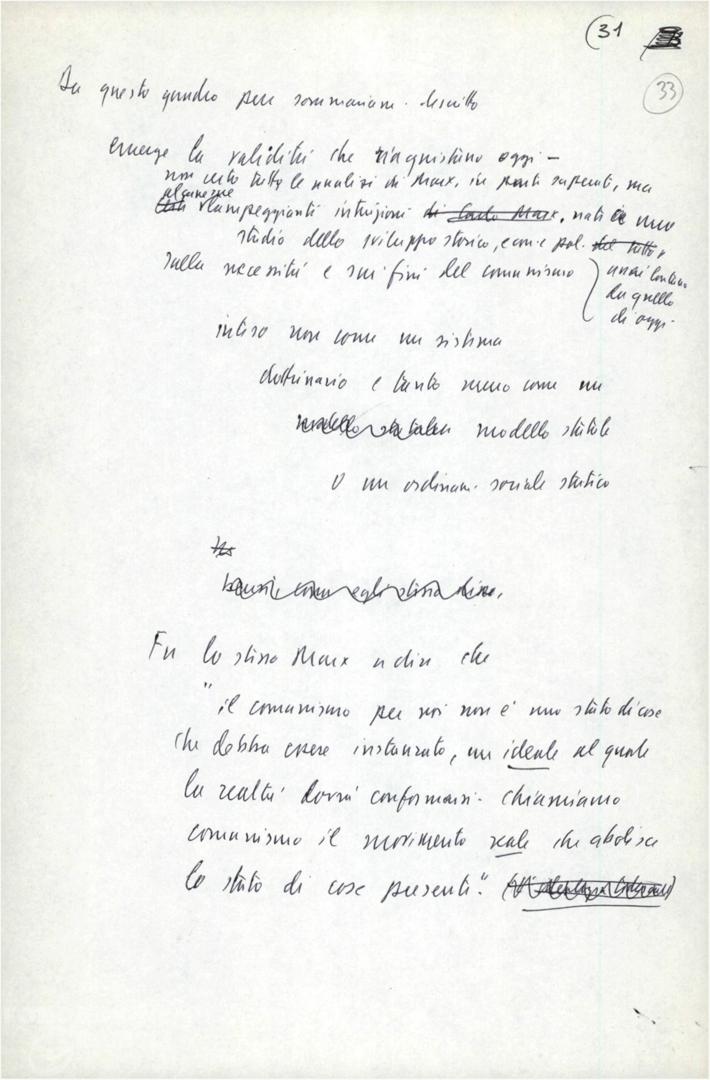 (31
33
Da questo quadro pur sommariam. descritto
emerge la validità che riacquistano oggi –
non certo tutte le analisi di Marx, in parti superati, ma
alcune
lampeggianti intuizioni di Carlo Marx, nati da uno
studio dello sviluppo storico, econ. e pol. del tutto
sulla necessità e sui fini del comunismo
assai lontano
da quello
di oggi.
inteso non come un sistema
dottrinario e tanto meno come un
modello statale modello statale
o un ordinam. sociale statico
come egli stesso disse,
Fu lo stesso Marx a dire che
"il comunismo per noi non è uno stato di cose
che debba essere instaurato, un ideale al quale
la realtà dovrà conformarsi. Chiamiamo
comunismo il movimento reale che abolisce
lo stato di cose presenti".